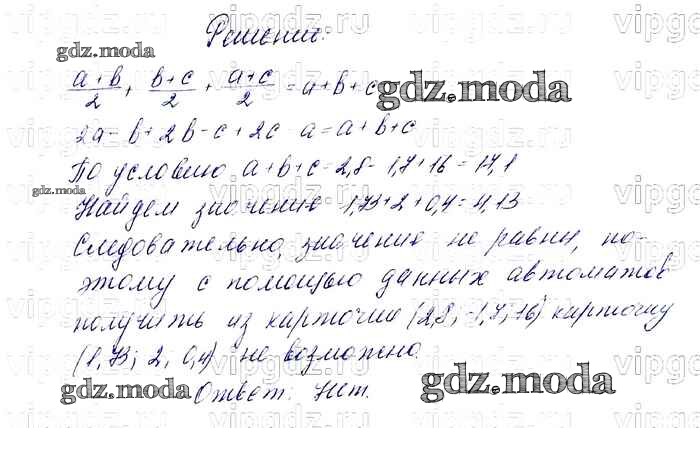 Решение:
gdz.moda
a+b/2 + b+c/2 + a+c/2 = a+b+c
gdz.moda
2a-b+2b-c+2c-a=a+b+c
По условию a+b+c=2,8-1,7+16=17,1
gdz.moda
Найдем значение 1,73+2+0,4=4,13
Следовательно, значение не равны, по-
этому с помощью данных автоматов
получить из карточки (2,8; -1,7; 16) карточку
(1,73; 2; 0,4) не возможно.
gdz.moda
gdz.moda
Ответ: Нет.